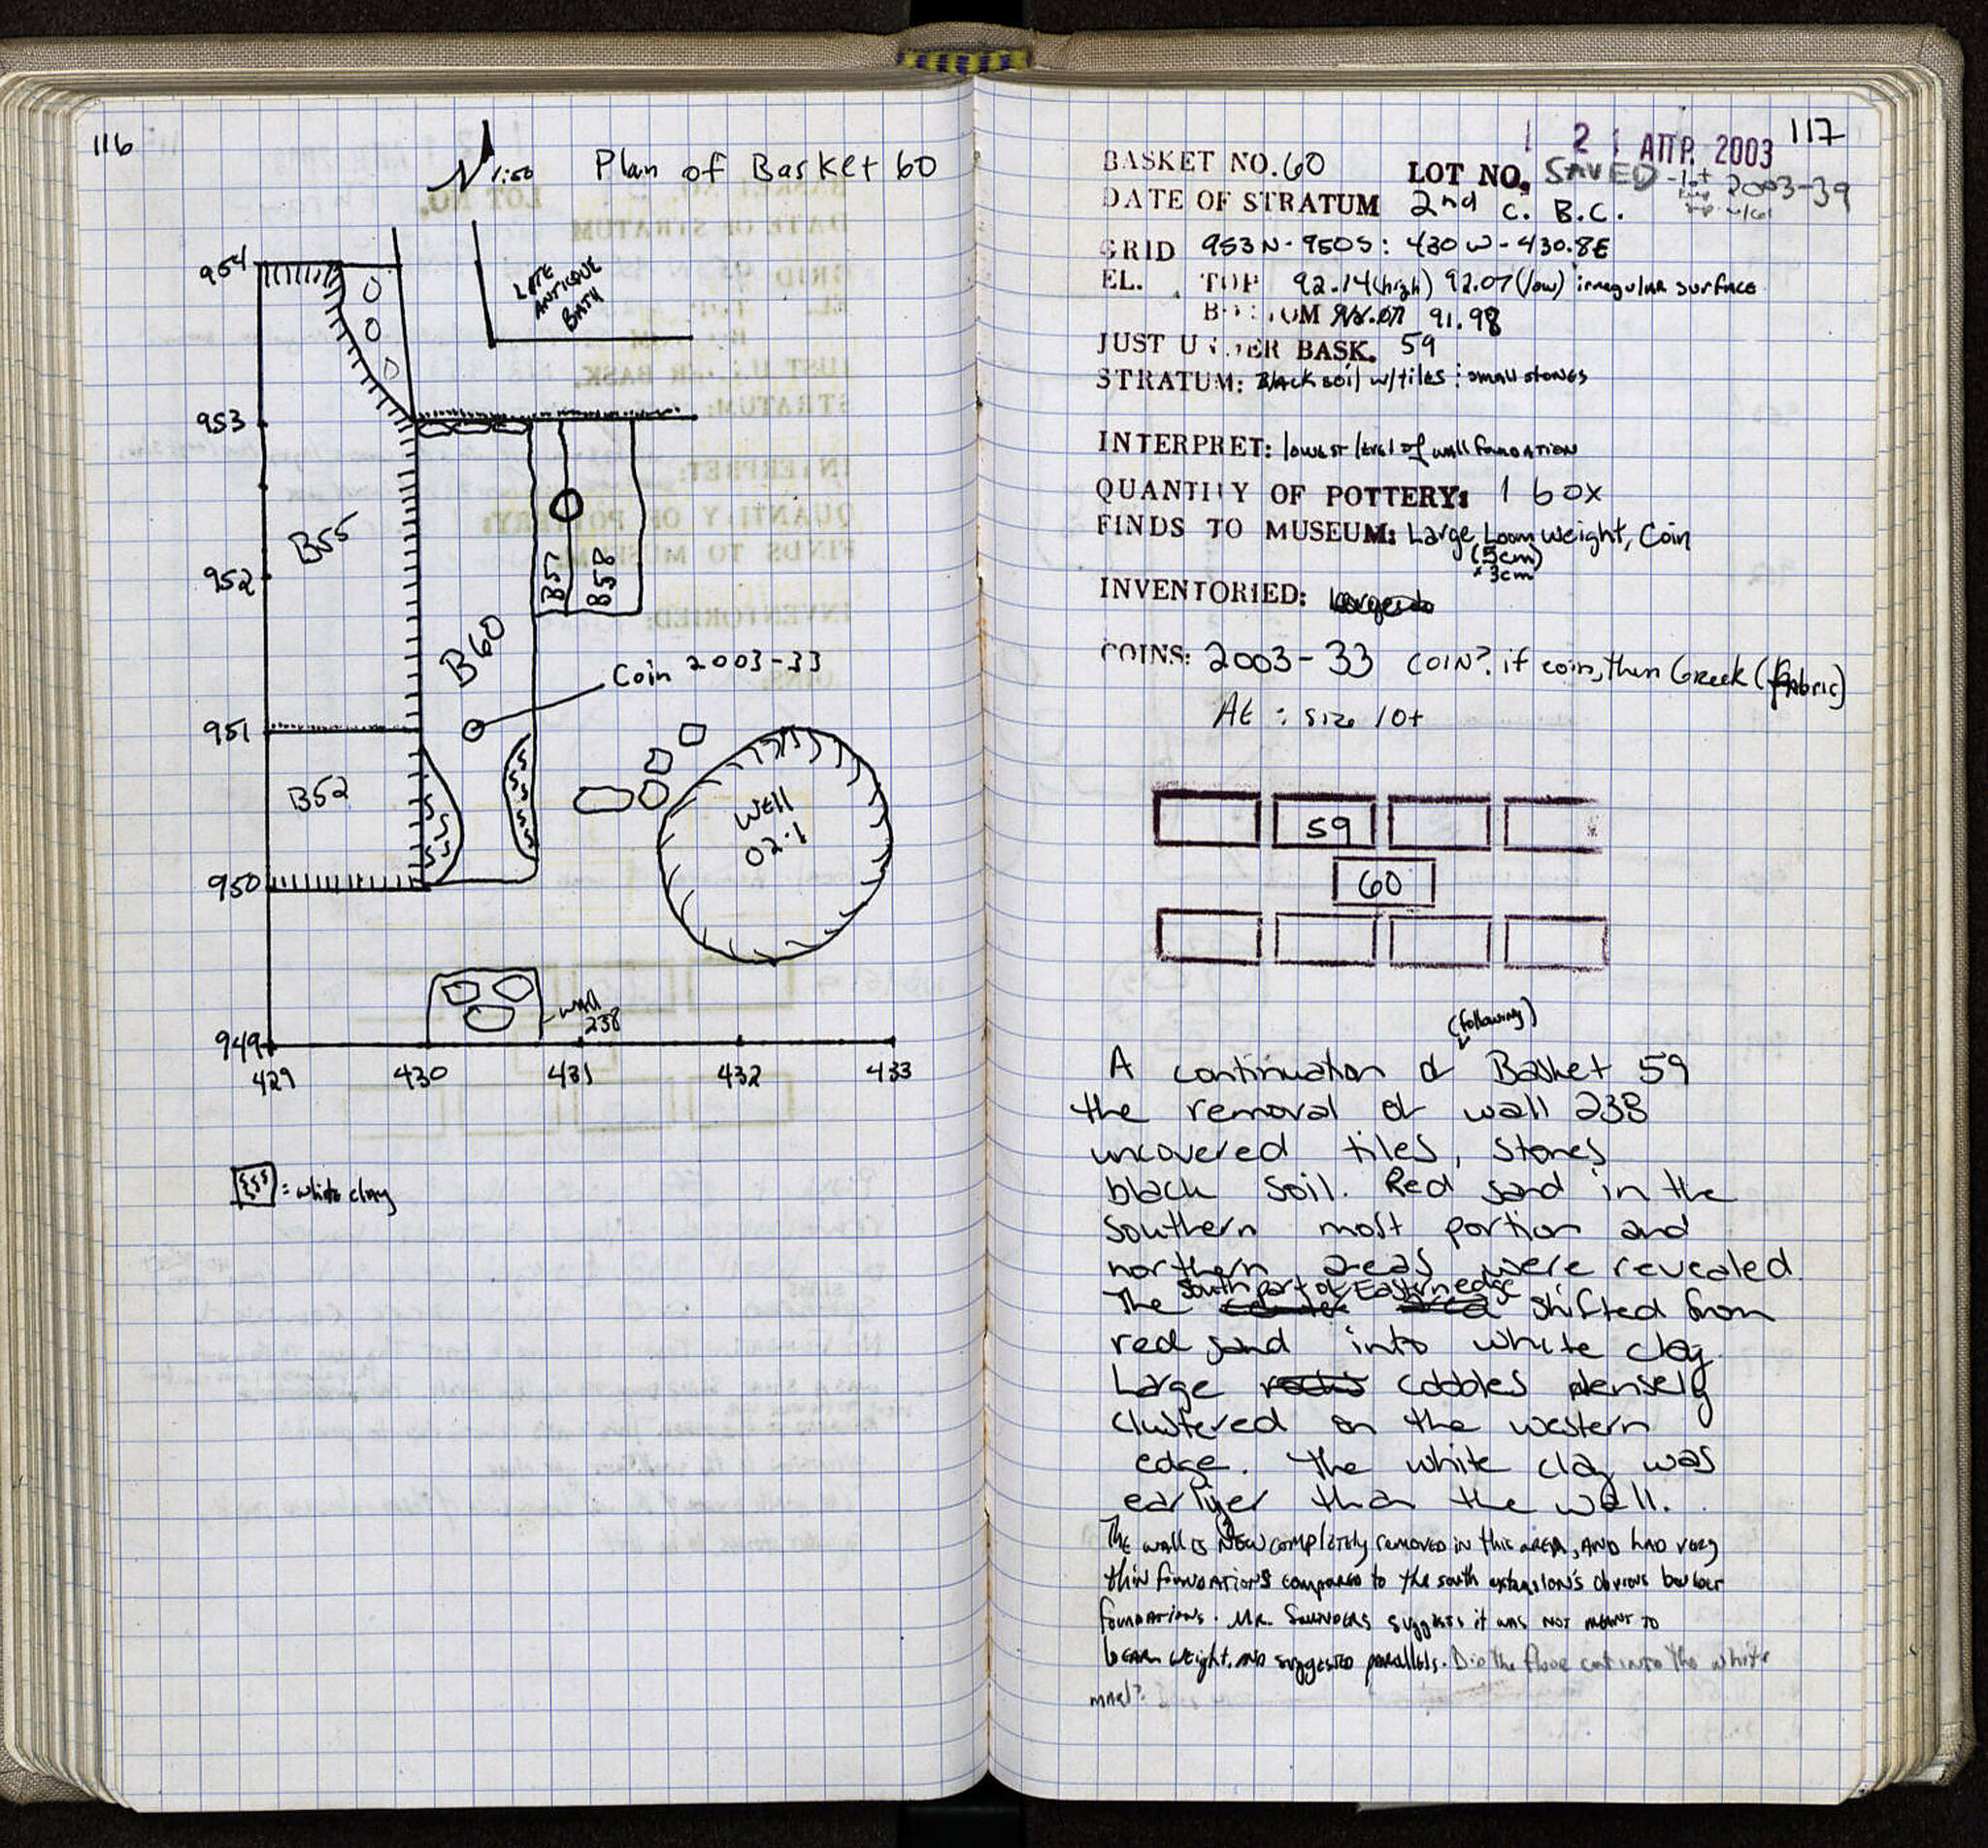 116
N 1:50 Plan of Basket 60
LATE
ANTIQUE
BATH
954
953
B55
952
B57
B58
B60
Coin 2003-33
951
B52
WELL
02:1
950
wall
238
949
429 430 431 432 433
= white clay
117
2 1 ΑΠΡ. 2003
BASKET NO. 60 LOT NO. SAVED - lot 2003-39
DATE OF STRATUM 2nd c. B.C.
GRID 953N-950S: 430W-430.8E
EL. TOP 92.14(high) 92.07(low) irregular surface
BOTTOM 91.98
JUST UNDER BASK. 59
STRATUM: Black soil w/tiles : small stones
INTERPRET: lowest level of wall foundation
QUANTITY OF POTTERY: 1 box
FINDS TO MUSEUM: Large Loom weight, Coin
(5cm)
x 3cm
INVENTORIED:
COINS: 2003-33 COIN?, if coin, then Greek (fabric)
AE : size 10+
59
60
(following)
A continuation of Basket 59
the removal of wall 238
uncovered tiles, stones
black soil. Red sand in the
southern most portion and
northern areas were revealed.
The South part of Eastern edge shifted from
red sand into white clay.
Large cobbles densely
clustered on the western
edge. The white clay was
earlyer than the wall.
The wall is now completely removed in this area, and had very
thin foundations compared to the south extension's obvious boulder
foundations. Mr. Saunders suggests it was not meant to
bear weight, and suggested parallels. Did the floor cut into the white
marl?